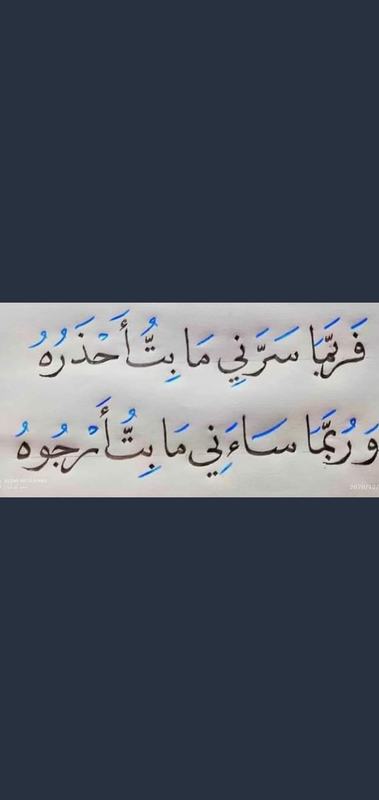 فَرُبَّمَا سَرَّنِي مَا بِتُّ أَحْذَرُهُ
وَرُبَّمَا سَاءَنِي مَا بِتُّ أَرْجُوهُ